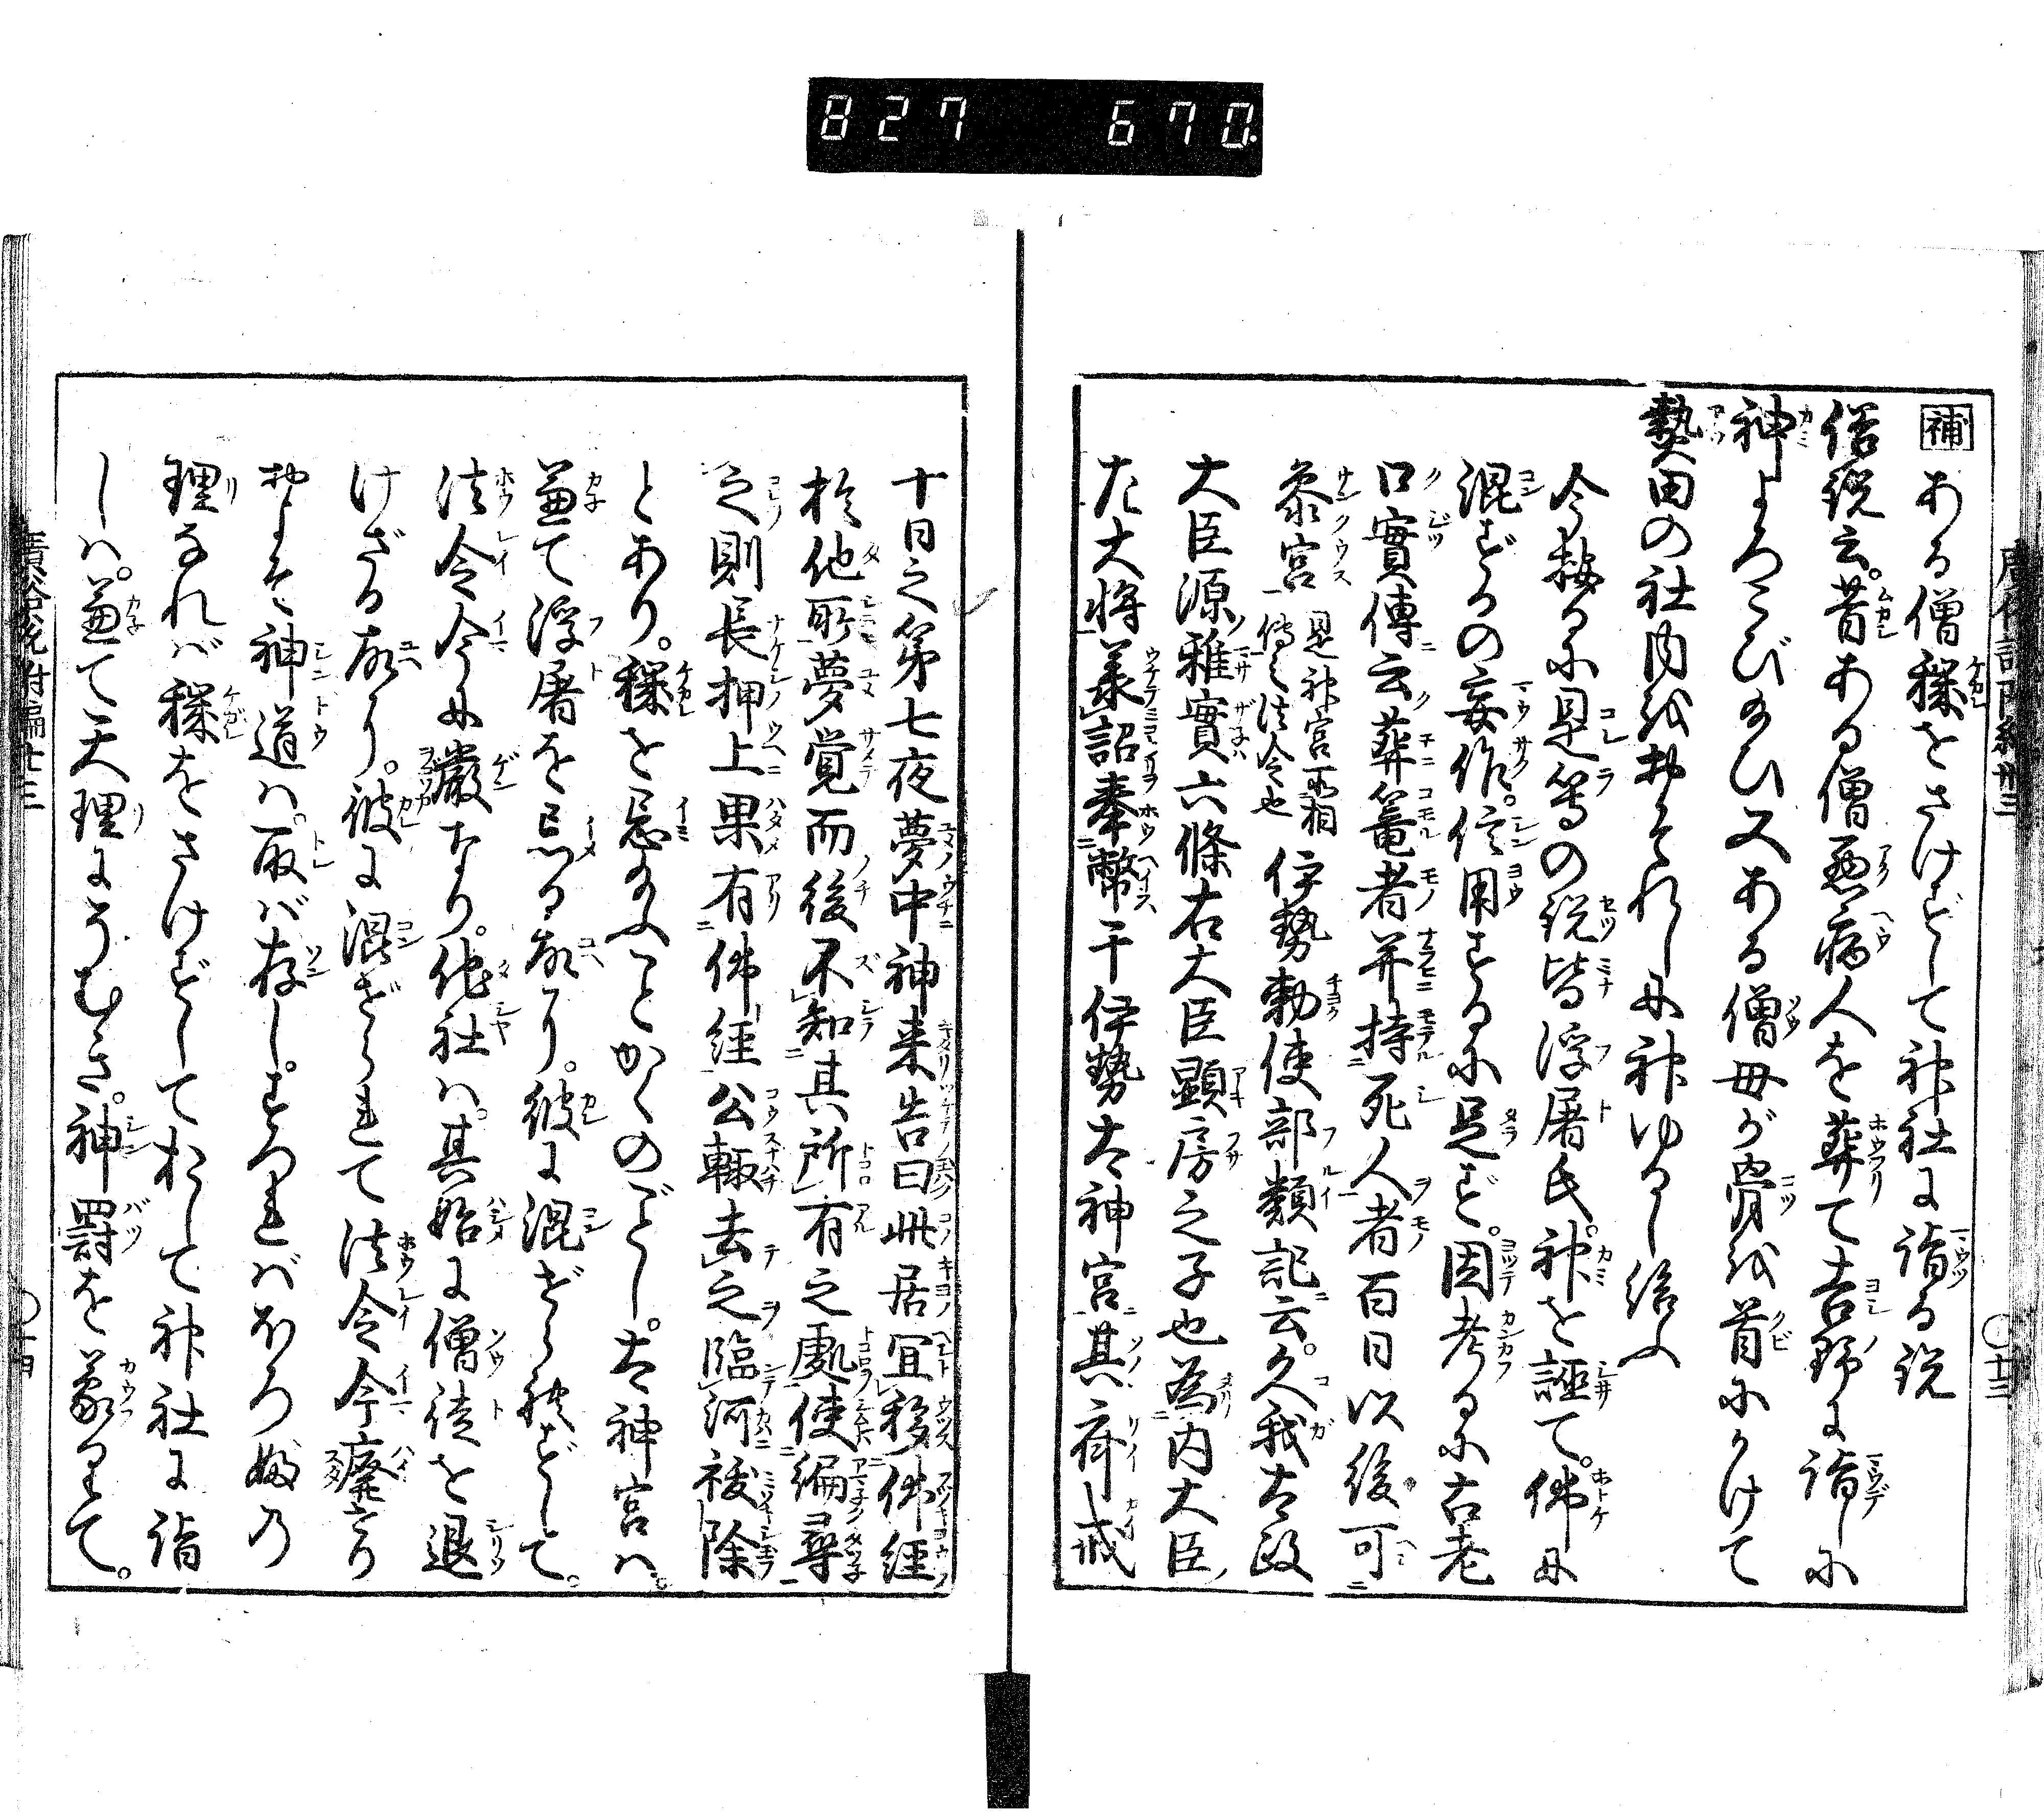 827 670
補 ある僧穢をさけずして神社に詣る説
俗説云。昔ある僧悪病人を葬て吉野に詣しに
神よろこび給ひ又ある僧母が骨を首にかけて
熱田の社内をおそれしに神ゆるし給ふ
今按るに是等の説皆浮屠氏。神を誣て。佛に
混ずるの妄作。信用するに足ず。因考るに古老
口實傳云葬篭者并持死人者百日以後可
参宮 是神宮所相傳之法令也 伊勢勅使部類記云。久我太政
大臣源雅實六條右大臣顕房之子也為内大臣
左大将羕詔奉幣于伊勢太神宮其齊戒
十日之第七夜夢中神来告曰此居宜移佛經
於他所夢覚而後不知其所有之處使編尋
之則長押上果有佛經公輙去之臨河祓除
とあり。穢を忌給ふことかくのごとし。太神宮は。
兼て浮屠を忌る故なり。彼に混ぜられずして。
法令今に嚴なり。他社は。其始に僧徒を退
けざる故なり。彼に混ぜられて法令今廃たり
およそ神道は。取ば存し。すつればほろぶの
理なれば穢をさけずしておして神社に詣
しは。兼て天理にそむき。神罸を蒙りて。
廣俗説附編卅三
〇十三
廣俗説附編卅三
〇十四